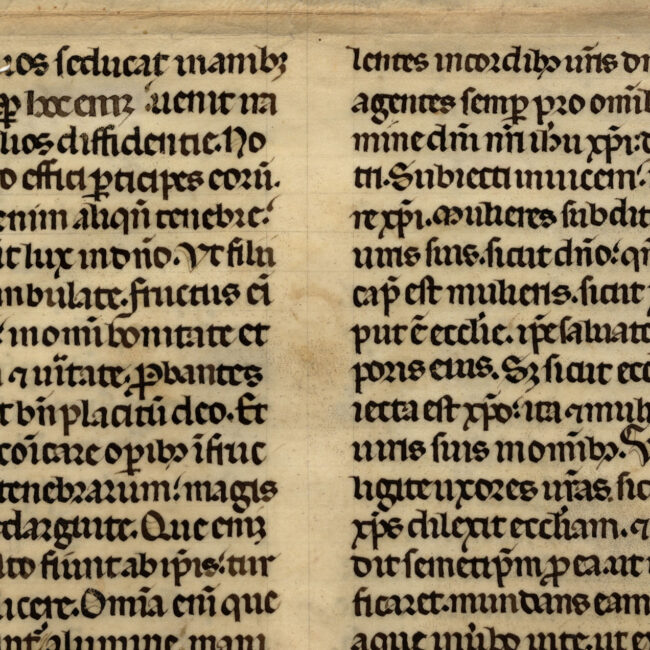 uos seducat inanibꝫ
ꝓp hoc enī uenit ira
lios diffidentie. No
o effici ꝑticipes eorū.
enim aliqn̄ tenebre:
t lux in dn̄o. Vt filii
mbulate. fructus ei
in om̄i bonitate et
⁊ uitate. Probantes
t bn̄placitū deo. Et
coīcare oꝑibꝫ ifruc
tenebrarum: magis
darguite. Que enī
lto fiunt ab ip̄is: tur
icere. Omīa eni que
nt᷑ a lumine mani
lentes in cordibꝫ ur̄is dn
agentes semꝑ pro omīb
mine dn̄i nr̄i ih̄u xp̄i: d
tri. Subiecti inuicem
re xp̄i. Mulieres subdit
uiris suis. sicut dn̄o: qn̄
cap̄ est mulieris. sicut
put ē eccl̄ie. ip̄e saluato
poris eius. Sꝫ sicut ecc
iecta est xp̄o: ita ⁊ mul
uiris suis in om̄ibꝫ. V
ligite uxores ur̄as. sic
xp̄s dilexit eccl̄iam. ⁊
dit semetip̄m ꝓ ea. ut i
ficaret. mundans eam
aque in ūbo uite. ut ex